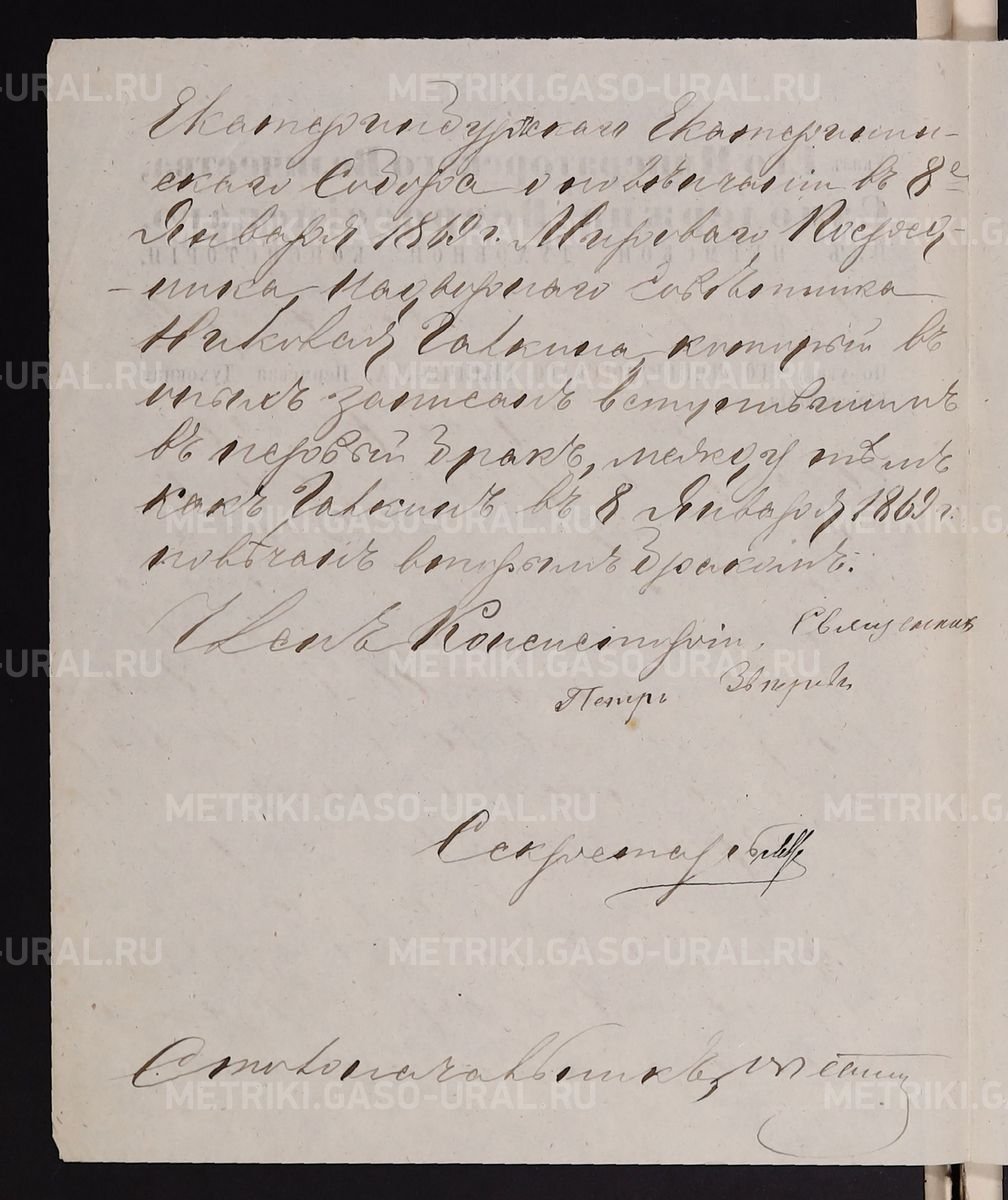 Екатеринбургскаго Екатеринин-
скаго Собора о повѣнчаніи въ 8е
Января 1869 г. Мироваго Посред-
ника, Надворнаго Совѣтника
Николая Галкина, который въ
оныхъ записанъ вступившимъ
въ первый бракъ, между тѣмъ
какъ Галкинъ въ 8 Января 1869 г.
повѣнчанъ вторымъ бракомъ.
Членъ Консисторіи, Священникъ
Петръ
Секретарь
Столоначальникъ
METRIKI.GASO-URAL.RU